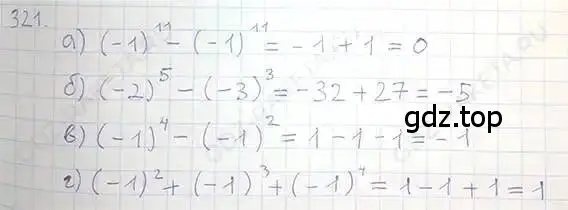 321.
а) (-1)¹¹ - (-1)¹¹ = -1 + 1 = 0
б) (-2)⁵ - (-3)³ = -32 + 27 = -5
в) (-1)⁴ - (-1)² = 1 - 1 - 1 = -1
г) (-1)² + (-1)³ + (-1)⁴ = 1 - 1 + 1 = 1
gdz.top